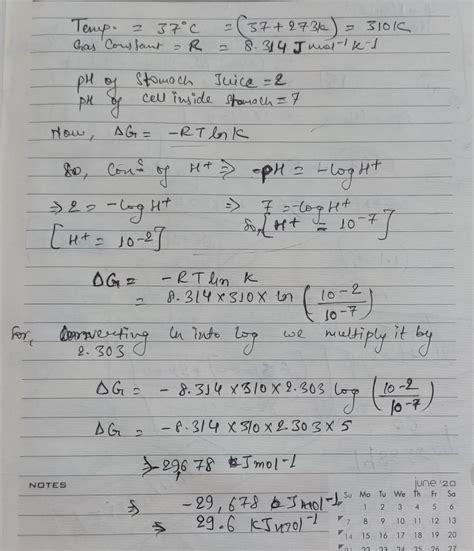 Temp. = 37°C = (37+273k) = 310K
Gas Constant = R = 8.314 J mol⁻¹ k⁻¹
pH of Stomach Juice = 2
pH of cell inside stomach = 7
Now, ΔG = -RT ln K
So, Conⁿ of H⁺ ⇒ -pH = -log H⁺
⇒ 2 = -log H⁺ ⇒ 7 = -log H⁺
[H⁺ = 10⁻²] So, [H⁺ = 10⁻⁷]
ΔG = -RT ln K
= 8.314 × 310 × ln (10⁻²/10⁻⁷)
For, converting ln into log we multiply it by
2.303
ΔG = - 8.314 × 310 × 2.303 log (10⁻²/10⁻⁷)
ΔG = -8.314 × 310 × 2.303 × 5
⇒ -29,678 J mol⁻¹
⇒ -29,678 J mol⁻¹
⇒ 29.6 KJ mol⁻¹
NOTES
june '20
Su Mo Tu We Th Fr Sa
1 2 3 4 5 6
7 8 9 10 11 12 13
14 15 16 17 18 19 20
21 22 23 24 25 26 27